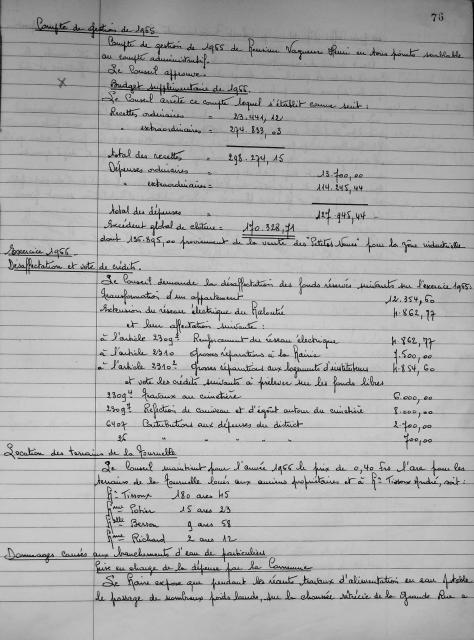 76
Compte de gestion de 1965
Compte de gestion de 1965 de Monsieur Vaganner Henri en tous points semblable
au compte administratif.
Le Conseil approuve.
Budget supplémentaire de 1966.
Le Conseil arrête ce compte lequel s'établit comme suit :
Recettes ordinaires = 23.441,12
" extraordinaires = 274.833,03
total des recettes " 298.274,15
Dépenses ordinaires " 13.700,00
" extraordinaires = 114.245,44
total des dépenses " 127.945,44
Excédent global de clôture = 170.328,71
dont 135.895,00 provenant de la vente des "Petites Vaures" pour la zône industrielle
Exercice 1966
Désaffectation et vote de crédits.
Le Conseil demande la désaffectation des fonds réservés suivants sur l'exercice 1965:
Transformation d'un appartement 12.354,60
Extension du réseau électrique du 4.862,77
et leur affectation suivante :
à l'article 2309² Renforcement du réseau électrique 4.862,77
à l'article 2310 Grosses réparations à la Mairie 7.500,00
à l'article 2310² Grosses réparations aux logements d'instituteurs 4.854,60
et vote les crédits suivants à prélever sur les fonds libres
2309⁴ Travaux au cimetière 6.000,00
2309⁷ Réfection de caniveau et d'égout autour du cimetière 8.000,00
6407 Contributions aux dépenses du district 2.700,00
" " " " 700,00
Location des terrains de la Tournelle
Le Conseil maintient pour l'année 1966 le prix de 0,40 Frs l'are pour les
terrains de la Tournelle loués aux anciens propriétaires et à Mr Tissoux André, soit :
Mr Tissoux 180 ares 45
Mme Potier 15 ares 23
Melle Besson 9 ares 58
Mme Richard 2 ares 12
Dommages causés aux branchements d'eau de particuliers
Prise en charge de la dépense par la Commune
Le Maire expose que pendant les récents travaux d'alimentation en eau potable
le passage de nombreux poids lourds, sur la chaussée rétrécie de la Grande Rue a